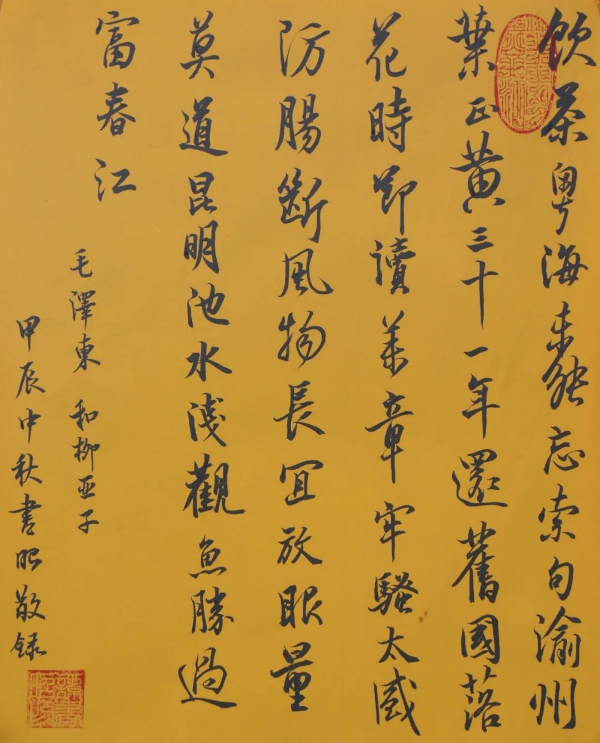 飲茶粵海未能忘索句渝州
葉正黃三十一年還舊國落
花時節讀華章牢騷太盛
防腸斷風物長宜放眼量
莫道昆明池水淺觀魚勝過
富春江
毛澤東 和柳亞子
甲辰中秋書敬錄